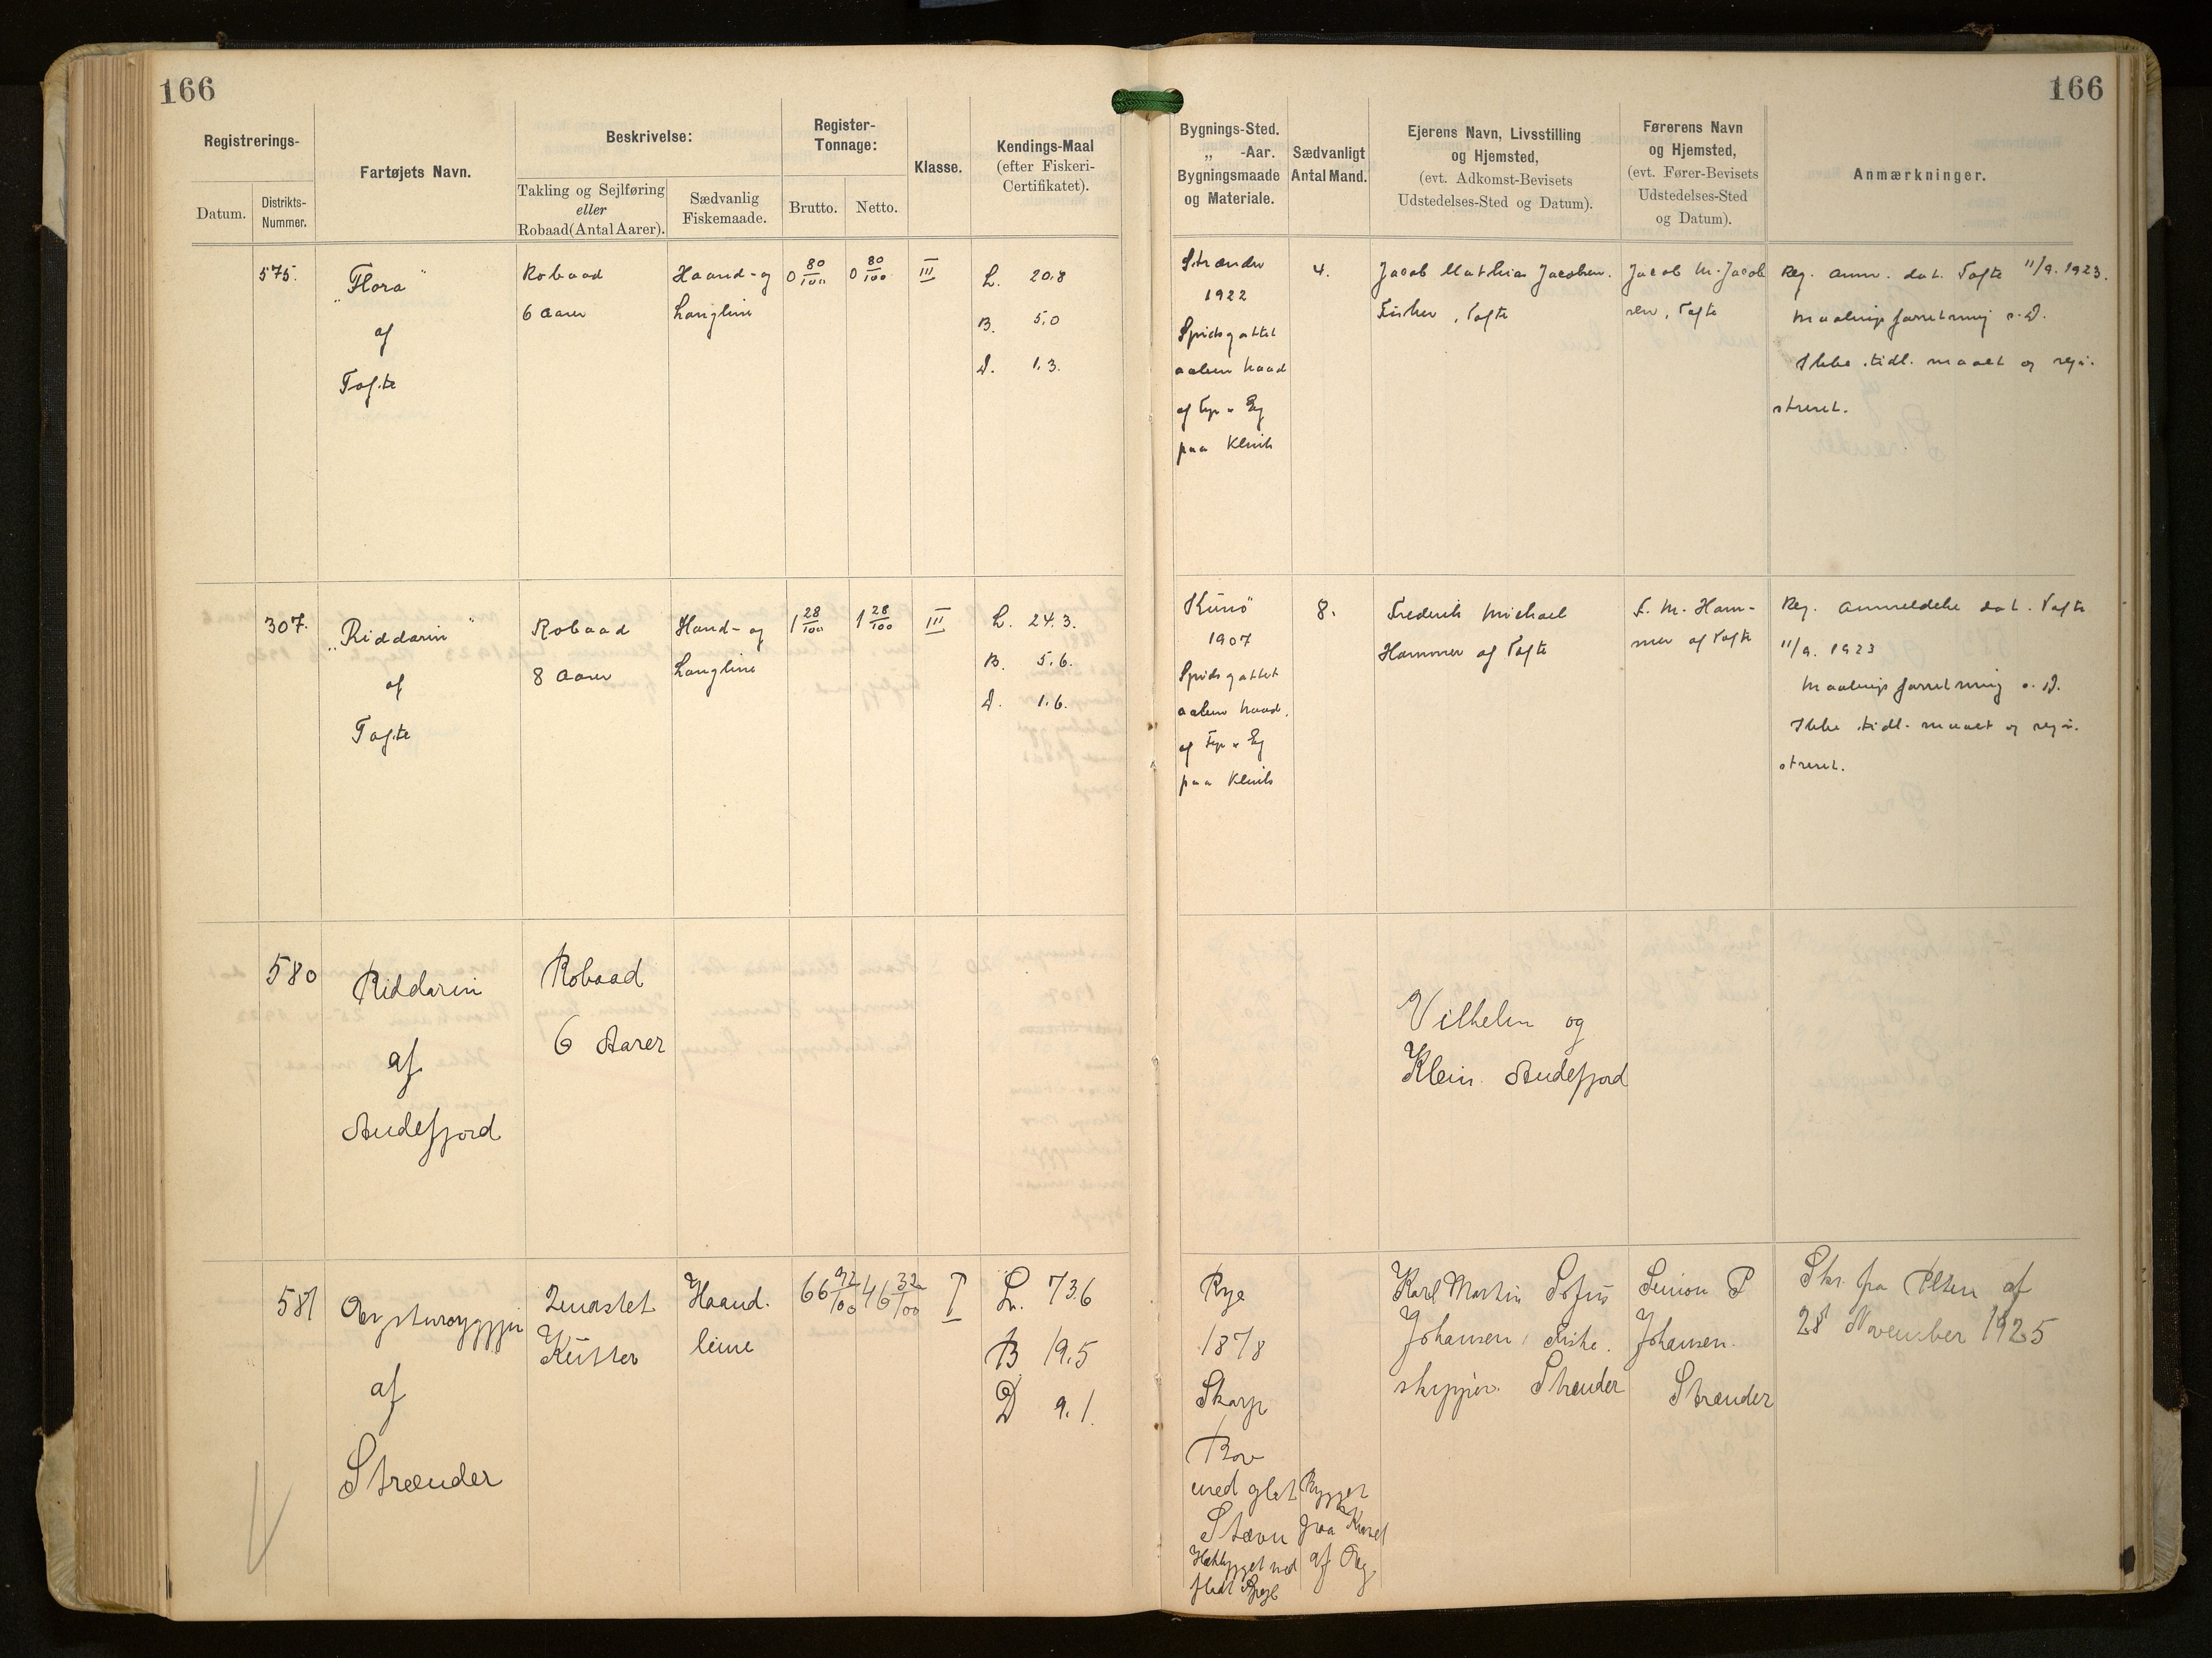 166
166
Registrerings-
Datum.
Distrikts-
Nummer.
Fartøjets Navn.
Beskrivelse:
Takling og Sejlføring
eller
Robaad (Antal Aarer).
Sædvanlig
Fiskemaade.
Register-
Tonnage:
Brutto.
Netto.
Klasse.
Kendings-Maal
(efter Fiskeri-
Certifikatet).
Bygnings-Sted.
„ -Aar.
Bygningsmaade
og Materiale.
Sædvanligt
Antal Mand.
Ejerens Navn, Livsstilling
og Hjemsted,
(evt. Adkomst-Bevisets
Udstedelses-Sted og Datum).
Førerens Navn
og Hjemsted,
(evt. Fører-Bevisets
Udstedelses-Sted
og Datum).
Anmærkninger.
575.
„Flora"
af
Tofte
Robaad
6 Aarer
Haand- og
Langline
0 80/100
0 80/100
III
L. 20.8
B. 5.0
D. 1.3.
Strænder
1922
Spidsgattet
aaben Baad
af Fyr & Eg
paa Klink
4.
Jacob Mathias Jacobsen.
Fisker, Tofte
Jacob M. Jacob
sen, Tofte
Reg. anm. dat. Tofte 11/9. 1923.
Maalingsforretning s. D.
Ikke tidl. maalt og regi-
streret.
307.
„Riddarin"
af
Tofte
Robaad
8 Aarer
Haand- og
Langline
1 28/100
1 28/100
III
L. 24.3.
B. 5.6.
D. 1.6.
Kunø
1907
Spidsgattet
aaben Baad,
af Fyr & Eg
paa Klink
8.
Frederik Michael
Hammer af Tofte
F. M. Ham-
mer af Tofte
Reg. anmeldelse dat. Tofte
11/9. 1923
Maalingsforretning s. D.
Ikke tidl. maalt og regi-
streret.
580
Riddarin
af
Andefjord
Robaad
6 Aarer
Vilhelm og
Klein Andefjord
581
af
Strænder
2mastet
Kutter
Haand.
line
66 92/100
46 32/100
I
L. 73.6
B 19.5
D 9.1.
Rye
1878
Skarp
Bov
med glat
Stævn
Hækbygget med
fladt Spejl
Bygget
paa Kravel
af Eg.
Karl Martin Sofus
Johansen, Fiske.
skipper. Strænder
Simon P
Johansen.
Strænder
Skr. fra
28 November 1925